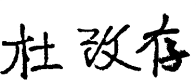 杜改存